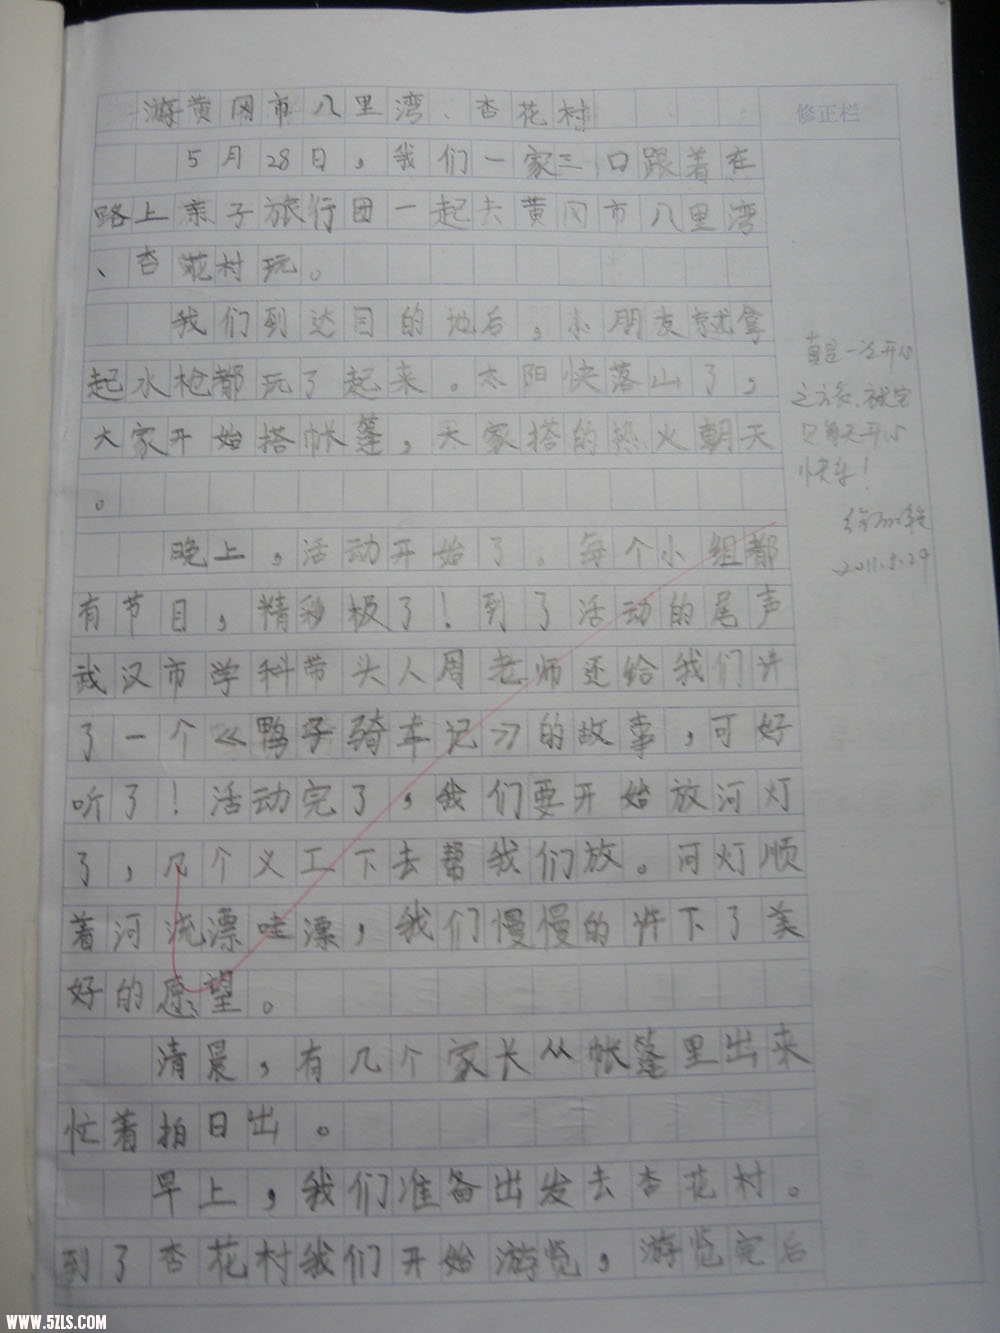 游黄冈市八里湾、杏花村
修正栏
5月28日，我们一家三口跟着在
路上亲子旅行团一起去黄冈市八里湾
、杏花村玩。
我们到达目的地后，小朋友就拿
起水枪都玩了起来。太阳快落山了，
大家开始搭帐篷，大家搭的热火朝天
。
晚上，活动开始了。每个小组都
有节目，精秒极了！到了活动的尾声
武汉市学科带头人周老师还给我们讲
了一个《鸭子骑车记》的故事，可好
听了！活动完了，我们要开始放河灯
了，几个义工下去帮我们放。河灯顺
着河流漂哇漂，我们慢慢的许下了美
好的愿望。
清晨，有几个家长从帐篷里出来
忙着拍日出。
早上，我们准备出发去杏花村。
到了杏花村我们开始游览，游览完后
真是一次开心
之旅，祝
天开心
快乐！
2011.5.29
WWW.5ZLS.COM